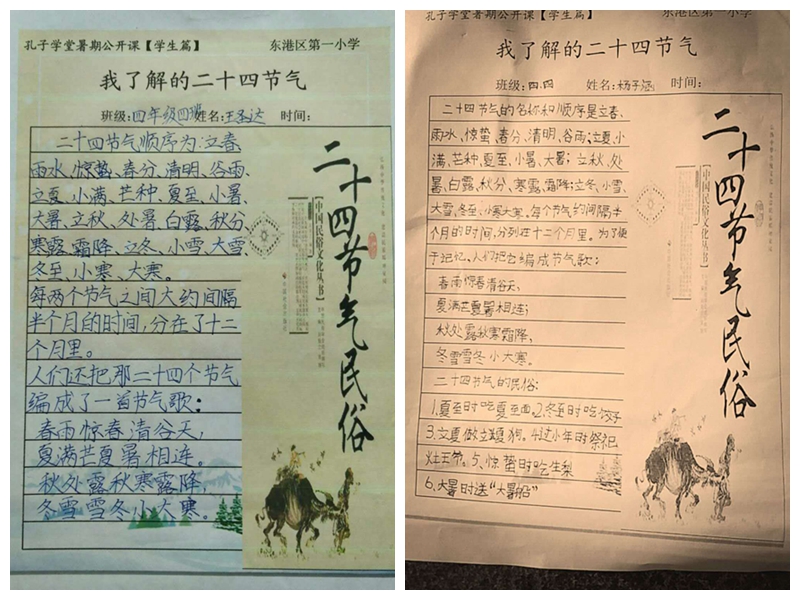 孔子学堂暑期公开课【学生篇】 东港区第一小学
我了解的二十四节气
班级:四年级四班 姓名:王圣达 时间:
二十四节气顺序为:立春、
雨水、惊蛰、春分、清明、谷雨、
立夏、小满、芒种、夏至、小暑、
大暑、立秋、处暑、白露、秋分、
寒露、霜降、立冬、小雪、大雪、
冬至、小寒、大寒。
每两个节气之间大约间隔
半个月的时间,分在了十二
个月里。
人们还把那二十四个节气
编成了一首节气歌:
春雨惊春清谷天,
夏满芒夏暑相连。
秋处露秋寒露降,
冬雪雪冬小大寒。
二十四节气民俗
【中国民俗文化丛书】
孔子学堂暑期公开课【学生篇】 东港区第一小学
我了解的二十四节气
班级:四.四 姓名:杨子涵 时间:
二十四节气的名称和顺序是立春、
雨水、惊蛰、春分、清明、谷雨;立夏、小
满、芒种、夏至、小暑、大暑;立秋、处
暑、白露、秋分、寒露、霜降;立冬、小雪、
大雪、冬至、小寒大寒。每个节气约间隔半
个月的时间,分列在十二个月里。为了便
于记忆,人们把它编成节气歌:
春雨惊春清谷天,
夏满芒夏暑相连;
秋处露秋寒霜降,
冬雪雪冬小大寒。
二十四节气的民俗:
1.夏至时吃夏至面.2.冬至时吃饺子
3.立夏做立夏狗。4.过小年时祭祀
灶王爷。5.惊蛰时吃生梨
6.大暑时送“大暑船”
二十四节气民俗
【中国民俗文化丛书】